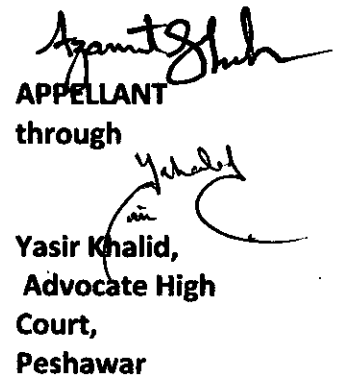 APPELLANT
through
Yasir Khalid,
Advocate High
Court,
Peshawar